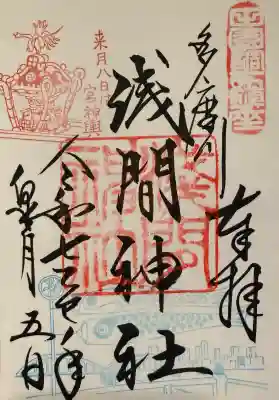 奉拝
多摩川
浅間神社
令和七年
皐月五日
来月八日は
宮神輿